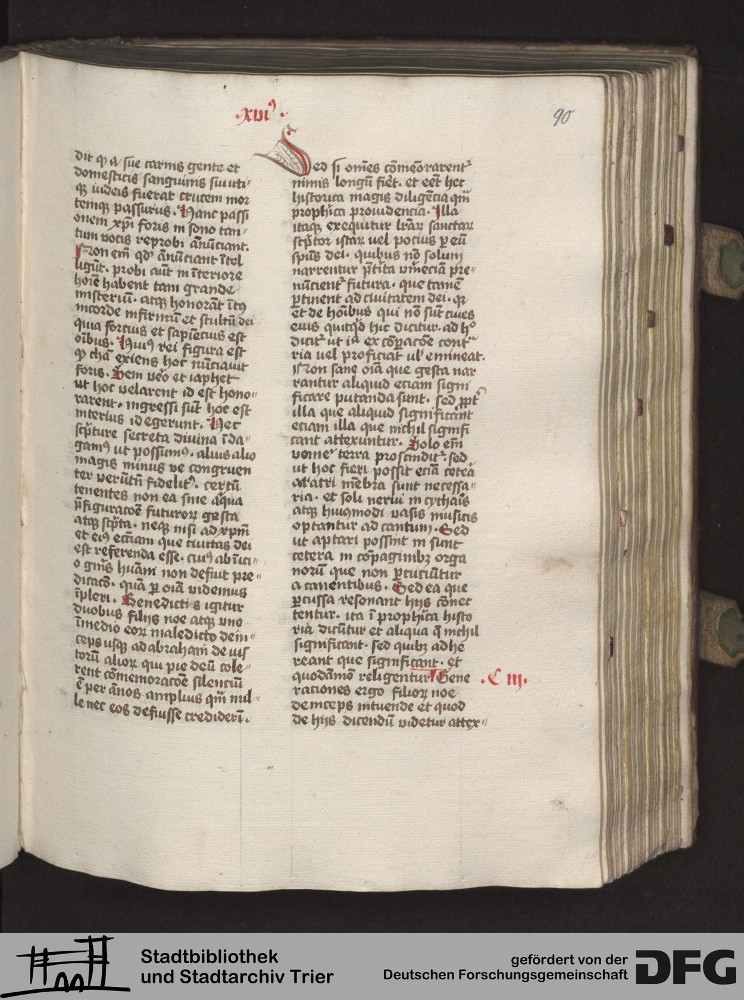 .xvi⁹.
90
dit q̄ a sue carnis gente et
domesticis sanguinis sui uti⸗
q̨ iudeis fuerat crucem mor
temq̨ passurus. Hanc passi
onem xp̄i foris in sono tan⸗
tum vocis reprobi añūciant.
Non em̄ qd᷎ añūciant ītel
ligūt. probi aūt in īteriore
hoīe habent tam grande
misteriū. atq̨ honorāt ītus
in corde infirmū et stultū dei
quia forcius et sapiēcius est
oībus. Huius rei figura est
q̄ chā exiens hoc nūciauit
foris. Sem ve̊o et iaphet
ut hoc velarent id est hono⸗
rarent. ingressi sūt hoc est
interius id egerunt. Hec
sc̄pture secreta divina īda⸗
gamus ut possumus. alius alio
magis minus ve congruen
ter verūtn̄ fidelit᷎. certū
tenentes non ea sine aliqua
p̄figuracōe futuror̄ gesta
atq̨ sc̄pta. neq̨ nisi ad xp̄m
et eius ecc̄iam que ciuitas dei
est referenda esse. cuius ab īici⸗
o gn̄is hūani non defuit pre⸗
dicacō. quā p oīa videmus
īpleri. Benedictis igitur
duobus filijs noe atq̨ uno
īmedio eor̄ maledicto dein⸗
ceps usq̨ ad abrahā de ius
torū alior̄ qui pie deū cole⸗
rent cōmemoracōe silenciū
ē per ānos amplius qm̄ mil⸗
le nec eos defuisse crediderī.
Sed si om̄es cōmēorarent᷎
nimis longū fiēt. et eēt hec
historica magis diligēcia qm̄
prophīca prouidencia. Illa
itaq̨ exequitur lr̄ar̄ sanctar̄
sc̄ptor istar̄ vel pocius p eū
spūs dei. quibus nō solum
narrentur p̄tīta vm̄eciā pre⸗
nūcient᷎ futura. que tamē
p̄tinent ad ciuitatem dei. q̨
et de hoībus qui nō sūt ciues
eius quitq̊d hic dicitur. ad h̊
dicit᷎ ut ia ex cōpacōe cont᷎
ria vel proficiat ul᷎ emineat.
Non sane oīa que gesta nar
rantur aliquid eciam signi
ficare putanda sunt. sed ꝓpt᷎
illa que aliquid significant
eciam illa que nichil signifi
cant attexuntur. Solo em̄
vomere terra proscindit᷎. sed
ut hoc fieri possit eciā cetēa
aratri mēbra sunt necessa⸗
ria. et soli nervi in cytharis
atq̨ huiusmodi vasis musicis
optantur ad cantum. Sed
ut aptari possint in sunt
cetera in cōpaginibꝫ orga
norū que non p̄cuciūtur
a canentibus. Sed ea que
p̄cussa resonant hijs cōnec
tentur. ita ī prophīca histo
ria dicūtur et aliqua q̄ nichil
significant. sed quibꝫ adhe
reant que significant. et
quodāmō religentur Gene
.C III.
raciones ergo filior̄ noe
deinceps intuende et quod
de hijs dicendū videtur attex⸗
Stadtbibliothek
und Stadtarchiv Trier
gefördert von der
Deutschen Forschungsgemeinschaft
DFG